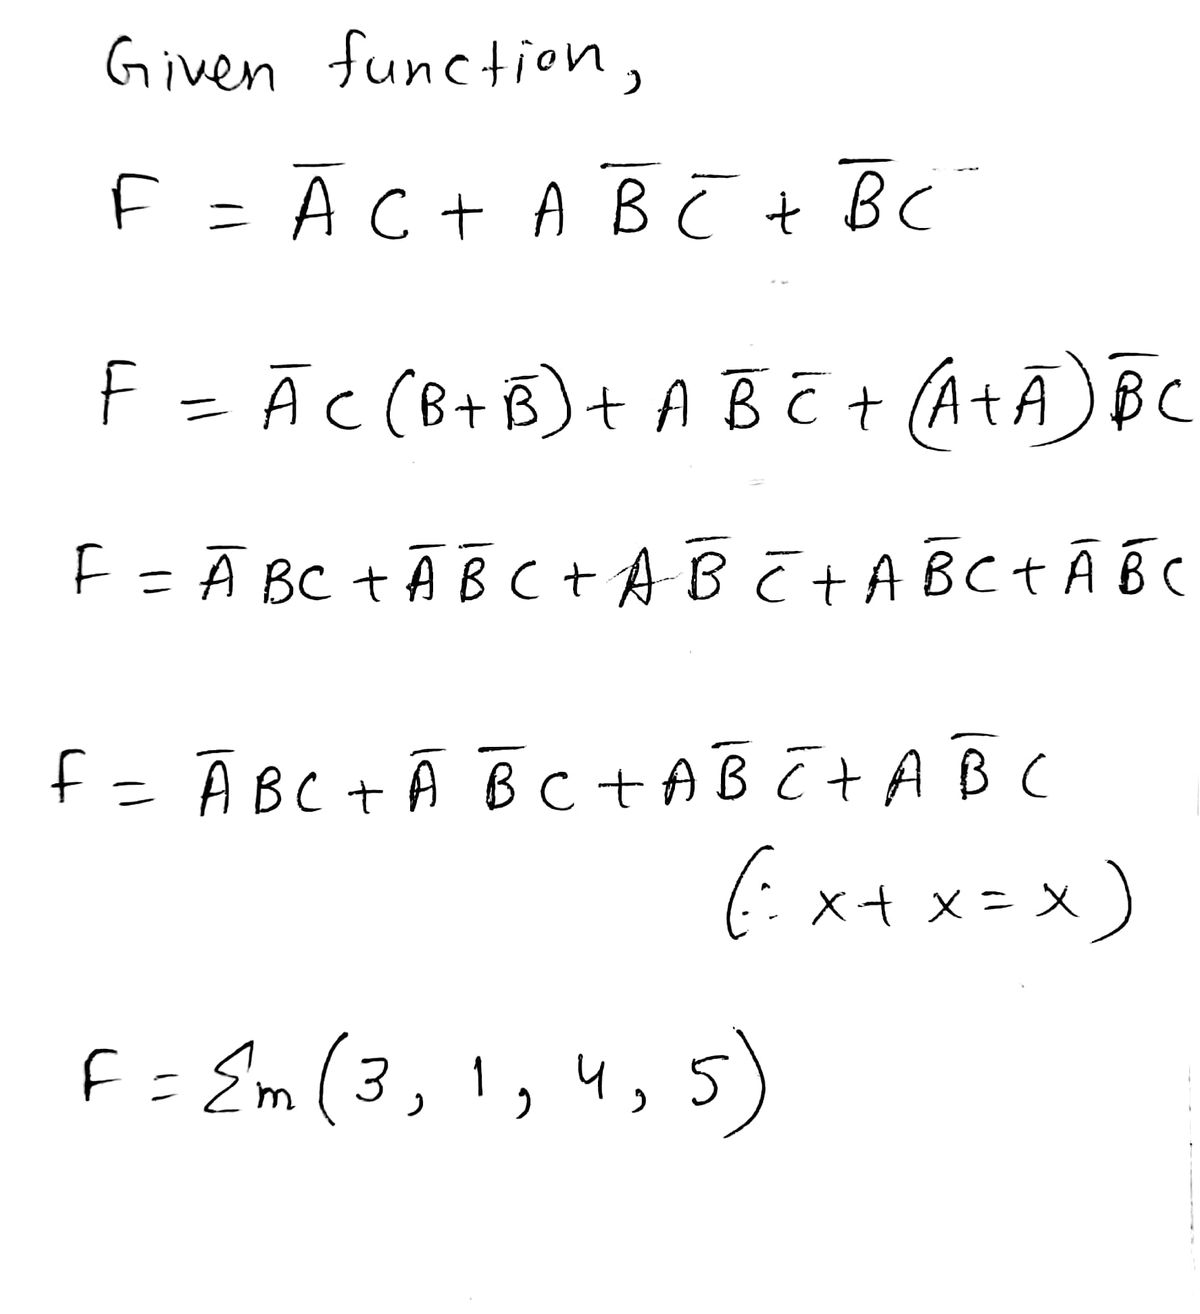 Given function,
F = A̅ C + A B̅ C̅ + B̅ C
F = A̅ C (B + B̅) + A B̅ C̅ + (A + A̅) B̅ C
F = A̅ B C + A̅ B̅ C + A B̅ C̅ + A B̅ C + A̅ B̅ C
F = A̅ B C + A̅ B̅ C + A B̅ C̅ + A B̅ C
(∵ x + x = x)
F = Σm (3, 1, 4, 5)